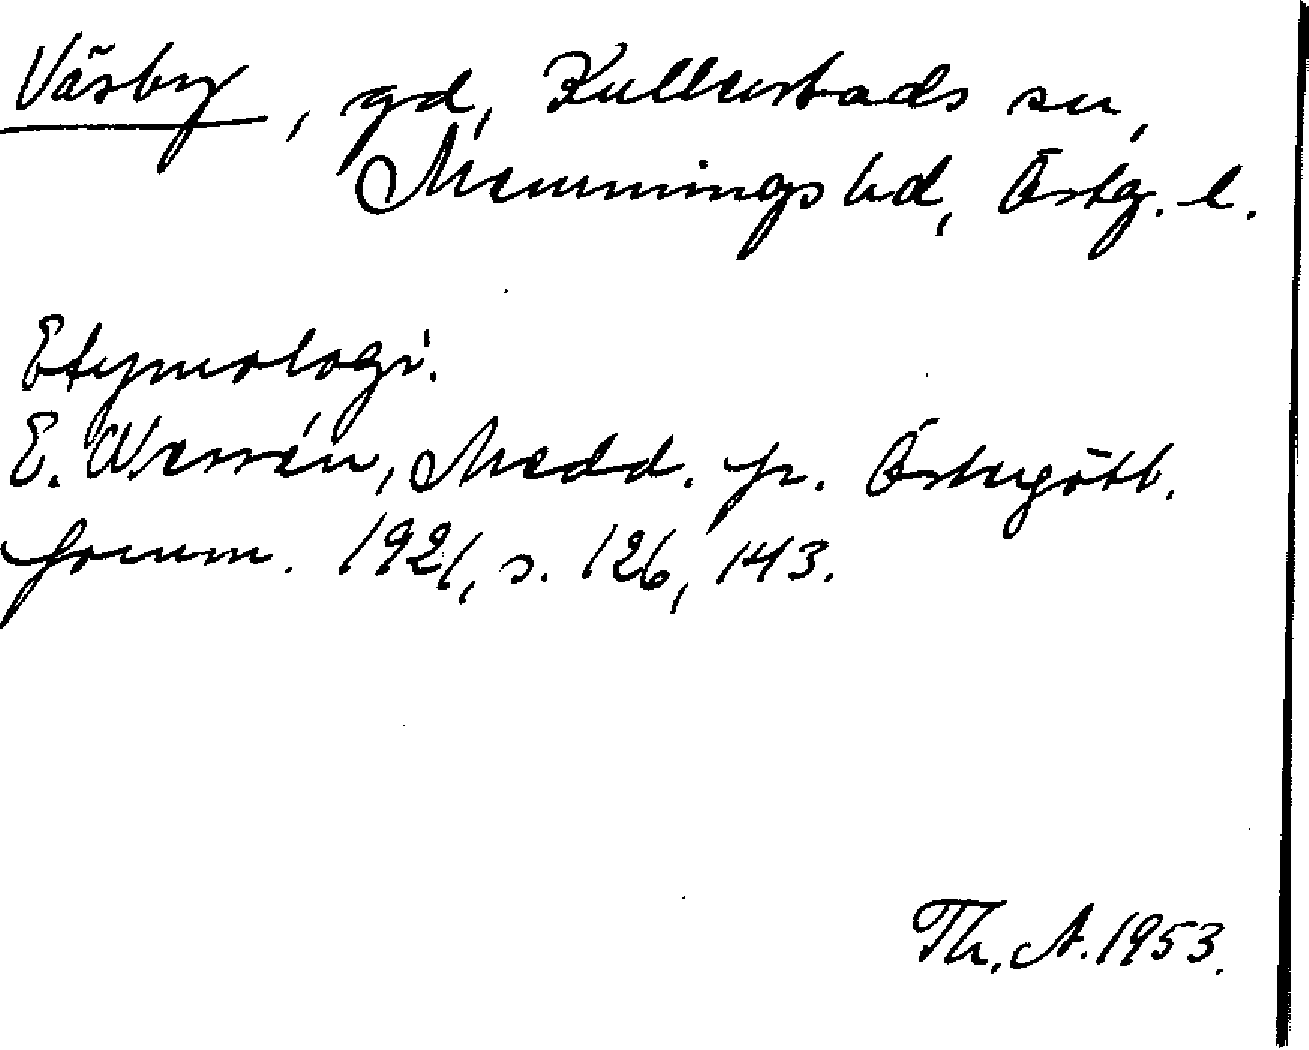 Väsby, gd, Kullerstads sn,
Memmings hd, Östg. l.
Etymologi.
E. Wessén, Medd. fr. Östergötl.
fornm. 1921, s. 126, 143.
Th. A. 1953.